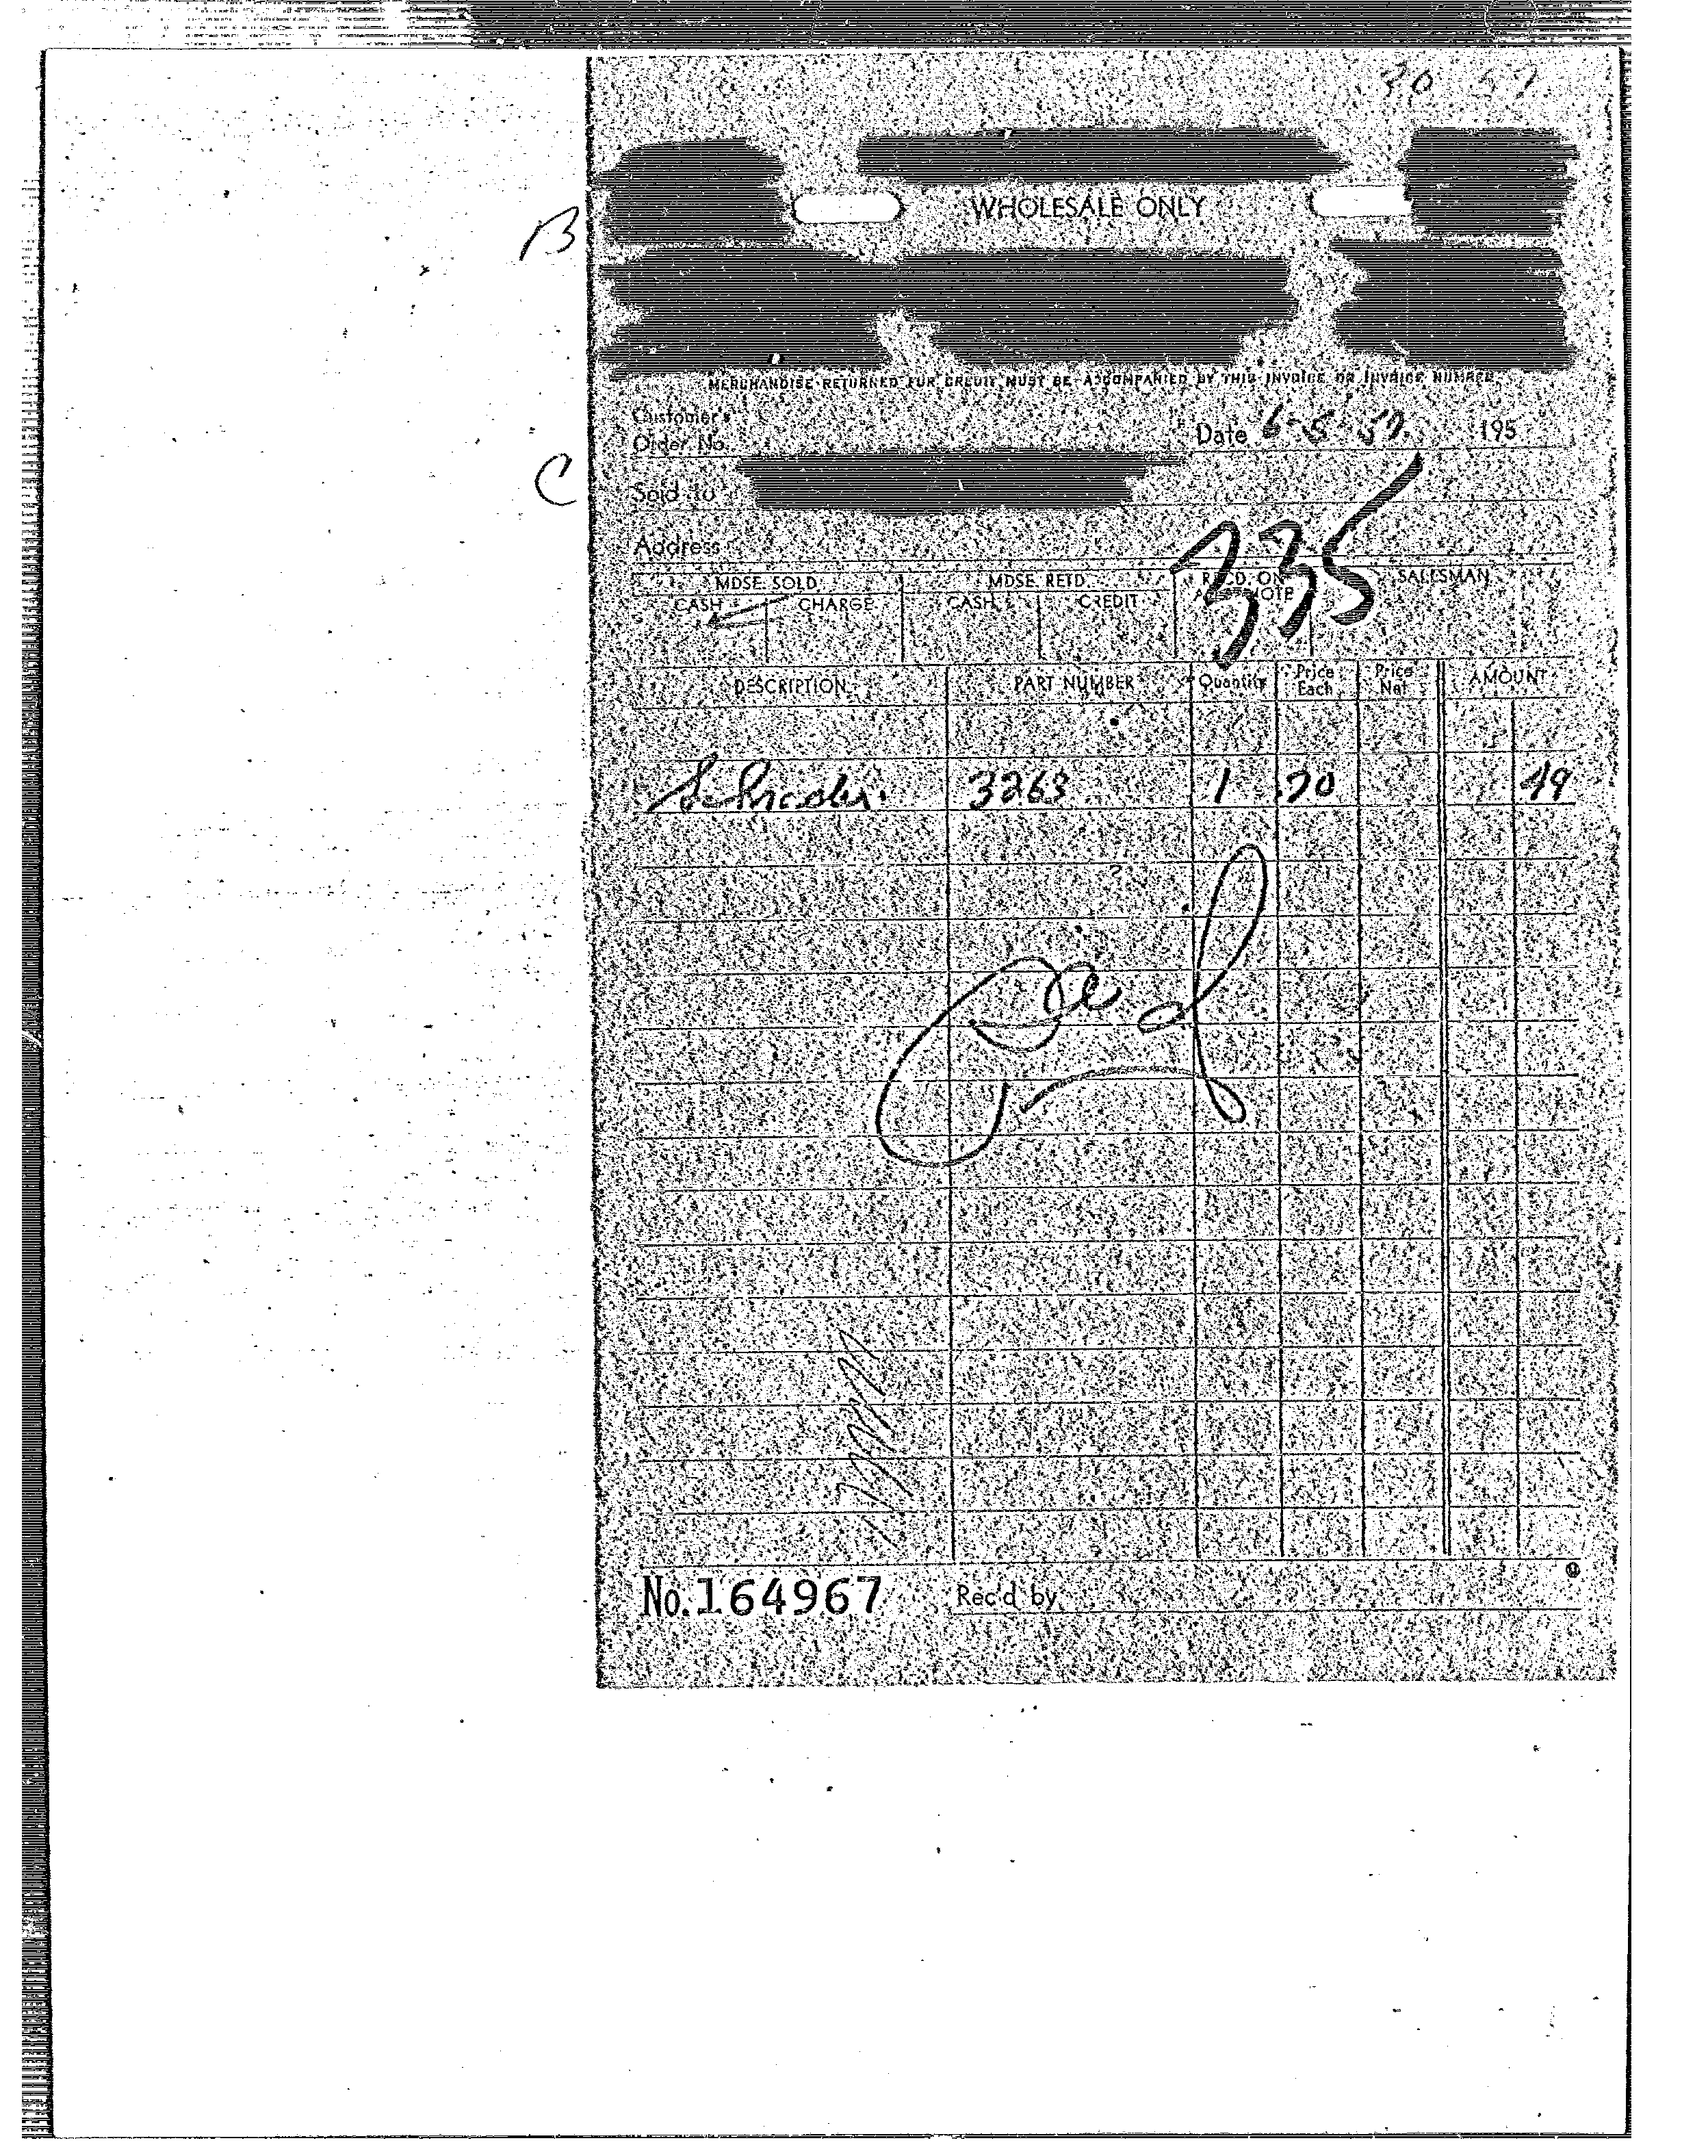 30 57
B
WHOLESALE ONLY
MERCHANDISE RETURNED FOR CREDIT MUST BE ACCOMPANIED BY THIS INVOICE OR INVOICE NUMBER
Customer's
Order No.
Date 6-5-57 195
C
Sold to
Address
335
MDSE. SOLD MDSE. RETD. REC'D. ON SALESMAN
CASH CHARGE CASH CREDIT
DESCRIPTION PART NUMBER Quantity Price Each Price Net AMOUNT
Schrader 3263 1 .70 49
Paid
No. 164967 Rec'd by